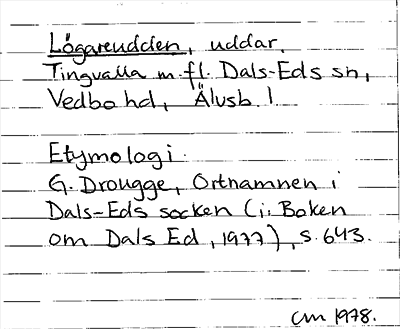 Lögareudden, uddar,
Tingvalla m.fl. Dals-Eds sn,
Vedbo hd, Älvsb. l
Etymologi.
G. Drougge, Ortnamnen i
Dals-Eds socken (i: Boken
om Dals Ed, 1977), s. 643.
CM 1978.